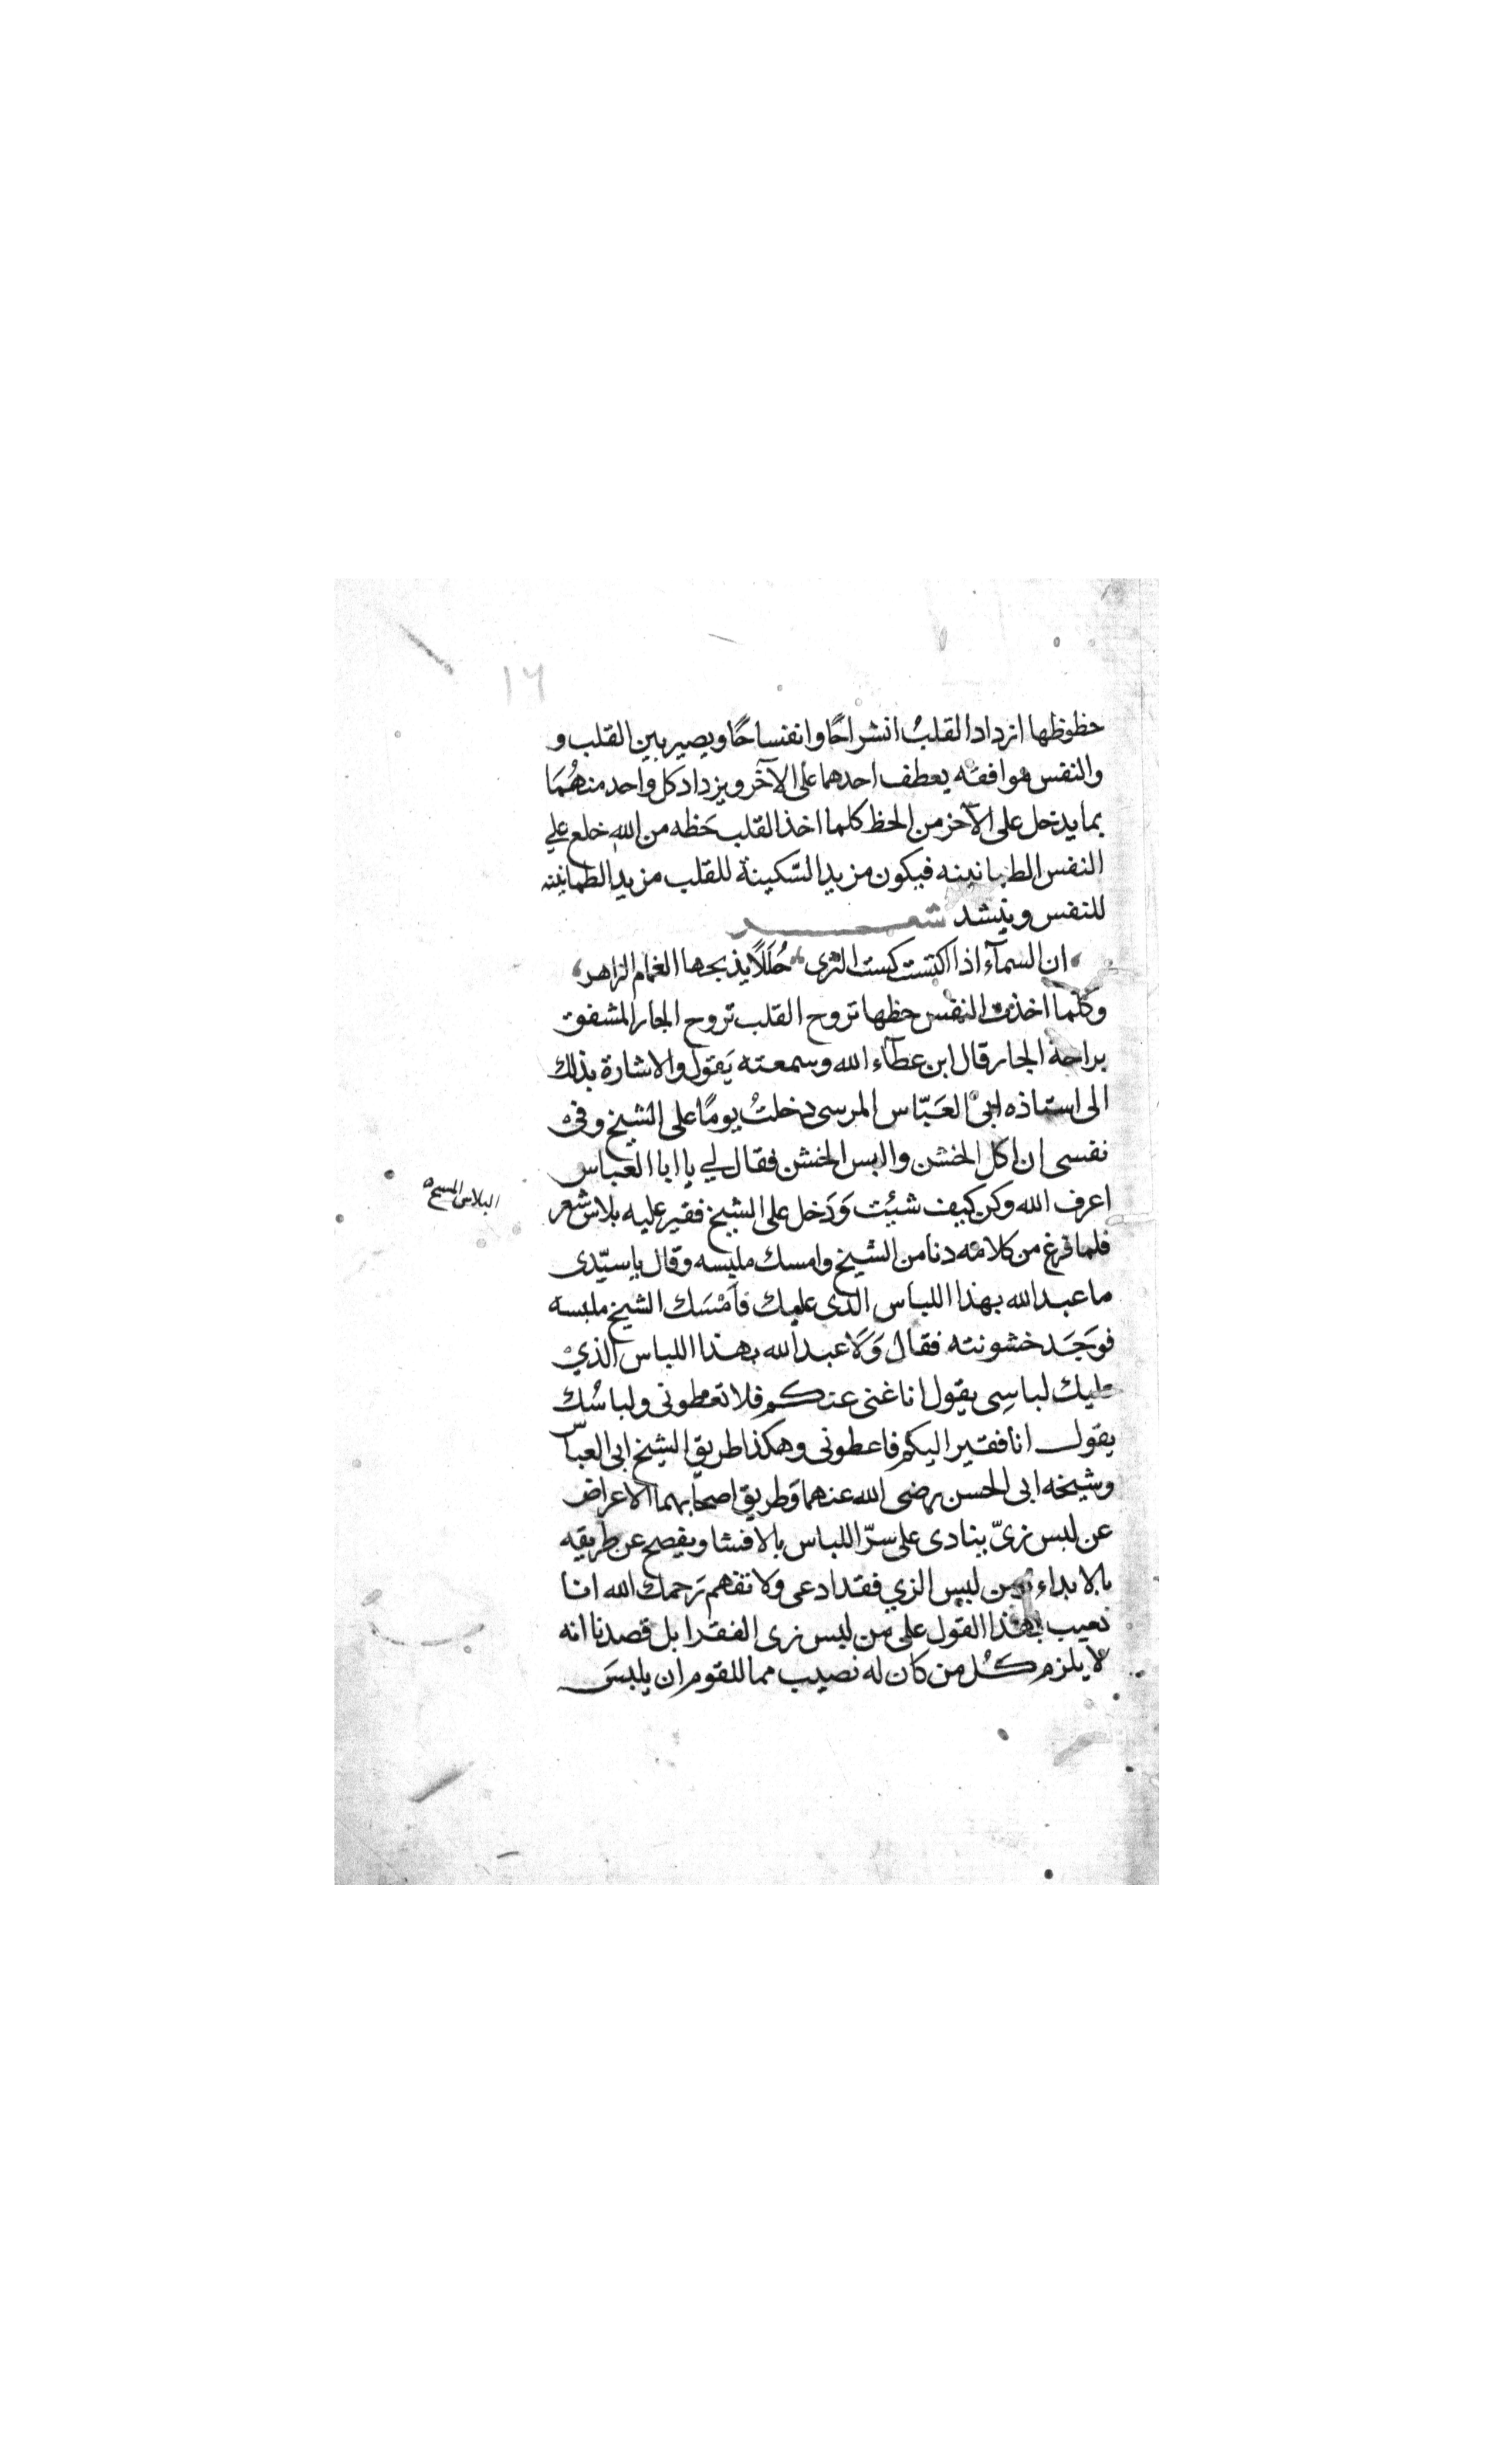 ١٦
حظوظها ازداد القلبُ انشراحًا وانفساحًا ويصير بين القلب و
والنفس موافقه يعطف احدهما على الآخر ويزداد كل واحد منهُمَا
بما يدخل على الآخر من الحظ كلما اخذ القلب حَظه من الله خلع علي
النفس الطمانينه فيكون مزيد السّكينة للقلب مزيد الطمانينه
للنفس وينشد شعر
ان السمآء اذا اكتست كست الثرى حُلَلًا يذبجها الغمام الزاهر
وكلما اخذت النفس حظها تروح القلب تروح الجار المشفق
براحة الجار قال ابن عطآء الله وسمعته يَقول والاشارة بذلك
الى استاذه ابى العَبّاس المرسى دخلتُ يومًا على الشيخ وفى
نفسى ان اكل الخشن والبس الخشن فقال لي يا ابا العباس
اعرف الله وكن كيف شئِت وَدَخل على الشيخ فقير عليه بلاس شعر
البلاس المسح
فلما فرغ من كلامه دنا من الشيخ وامسك ملبسه وقال ياسيّدى
ما عبد الله بهذا اللباس الذى عليك فاَمْسَك الشيخ ملبسه
فوَجَد خشونته فقال وَلَا عبد الله بهذا اللباس الذيْ
عليك لباسِى يقول انا غنى عنكم فلا تعطونى ولباسُك
يقول انا فقير اليكم فاعطونى وهكذا طريق الشيخ ابى العباس
وشيخه ابى الحسن رضى الله عنهما وَطريق اصحابهما الاعراض
عن لبس زىّ ينادى على سرّ اللباس بالافشا ويفصح عن طريقه
بالابداء ومن لبس الزي فقد ادعى ولا تفهم رَحمك الله انا
نعيب بهذا القول على من لبس زى الفقرا بل قصدنا انه
لا يلزم كُل من كان له نصيب مما للقوم ان يلبسَ